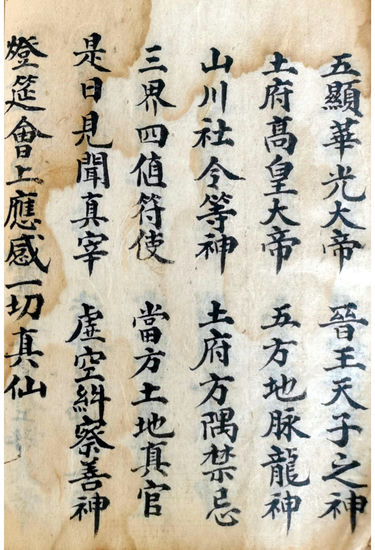 五顯華光大帝 晉王天子之神
土府高皇大帝 五方地脉龍神
山川社令等神 土府方隅禁忌
三界四值符使 當方土地真官
是日見聞真宰 虛空糾察善神
燈筵會上應感一切真仙